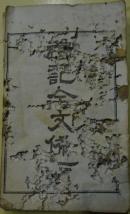 禮記全文備旨